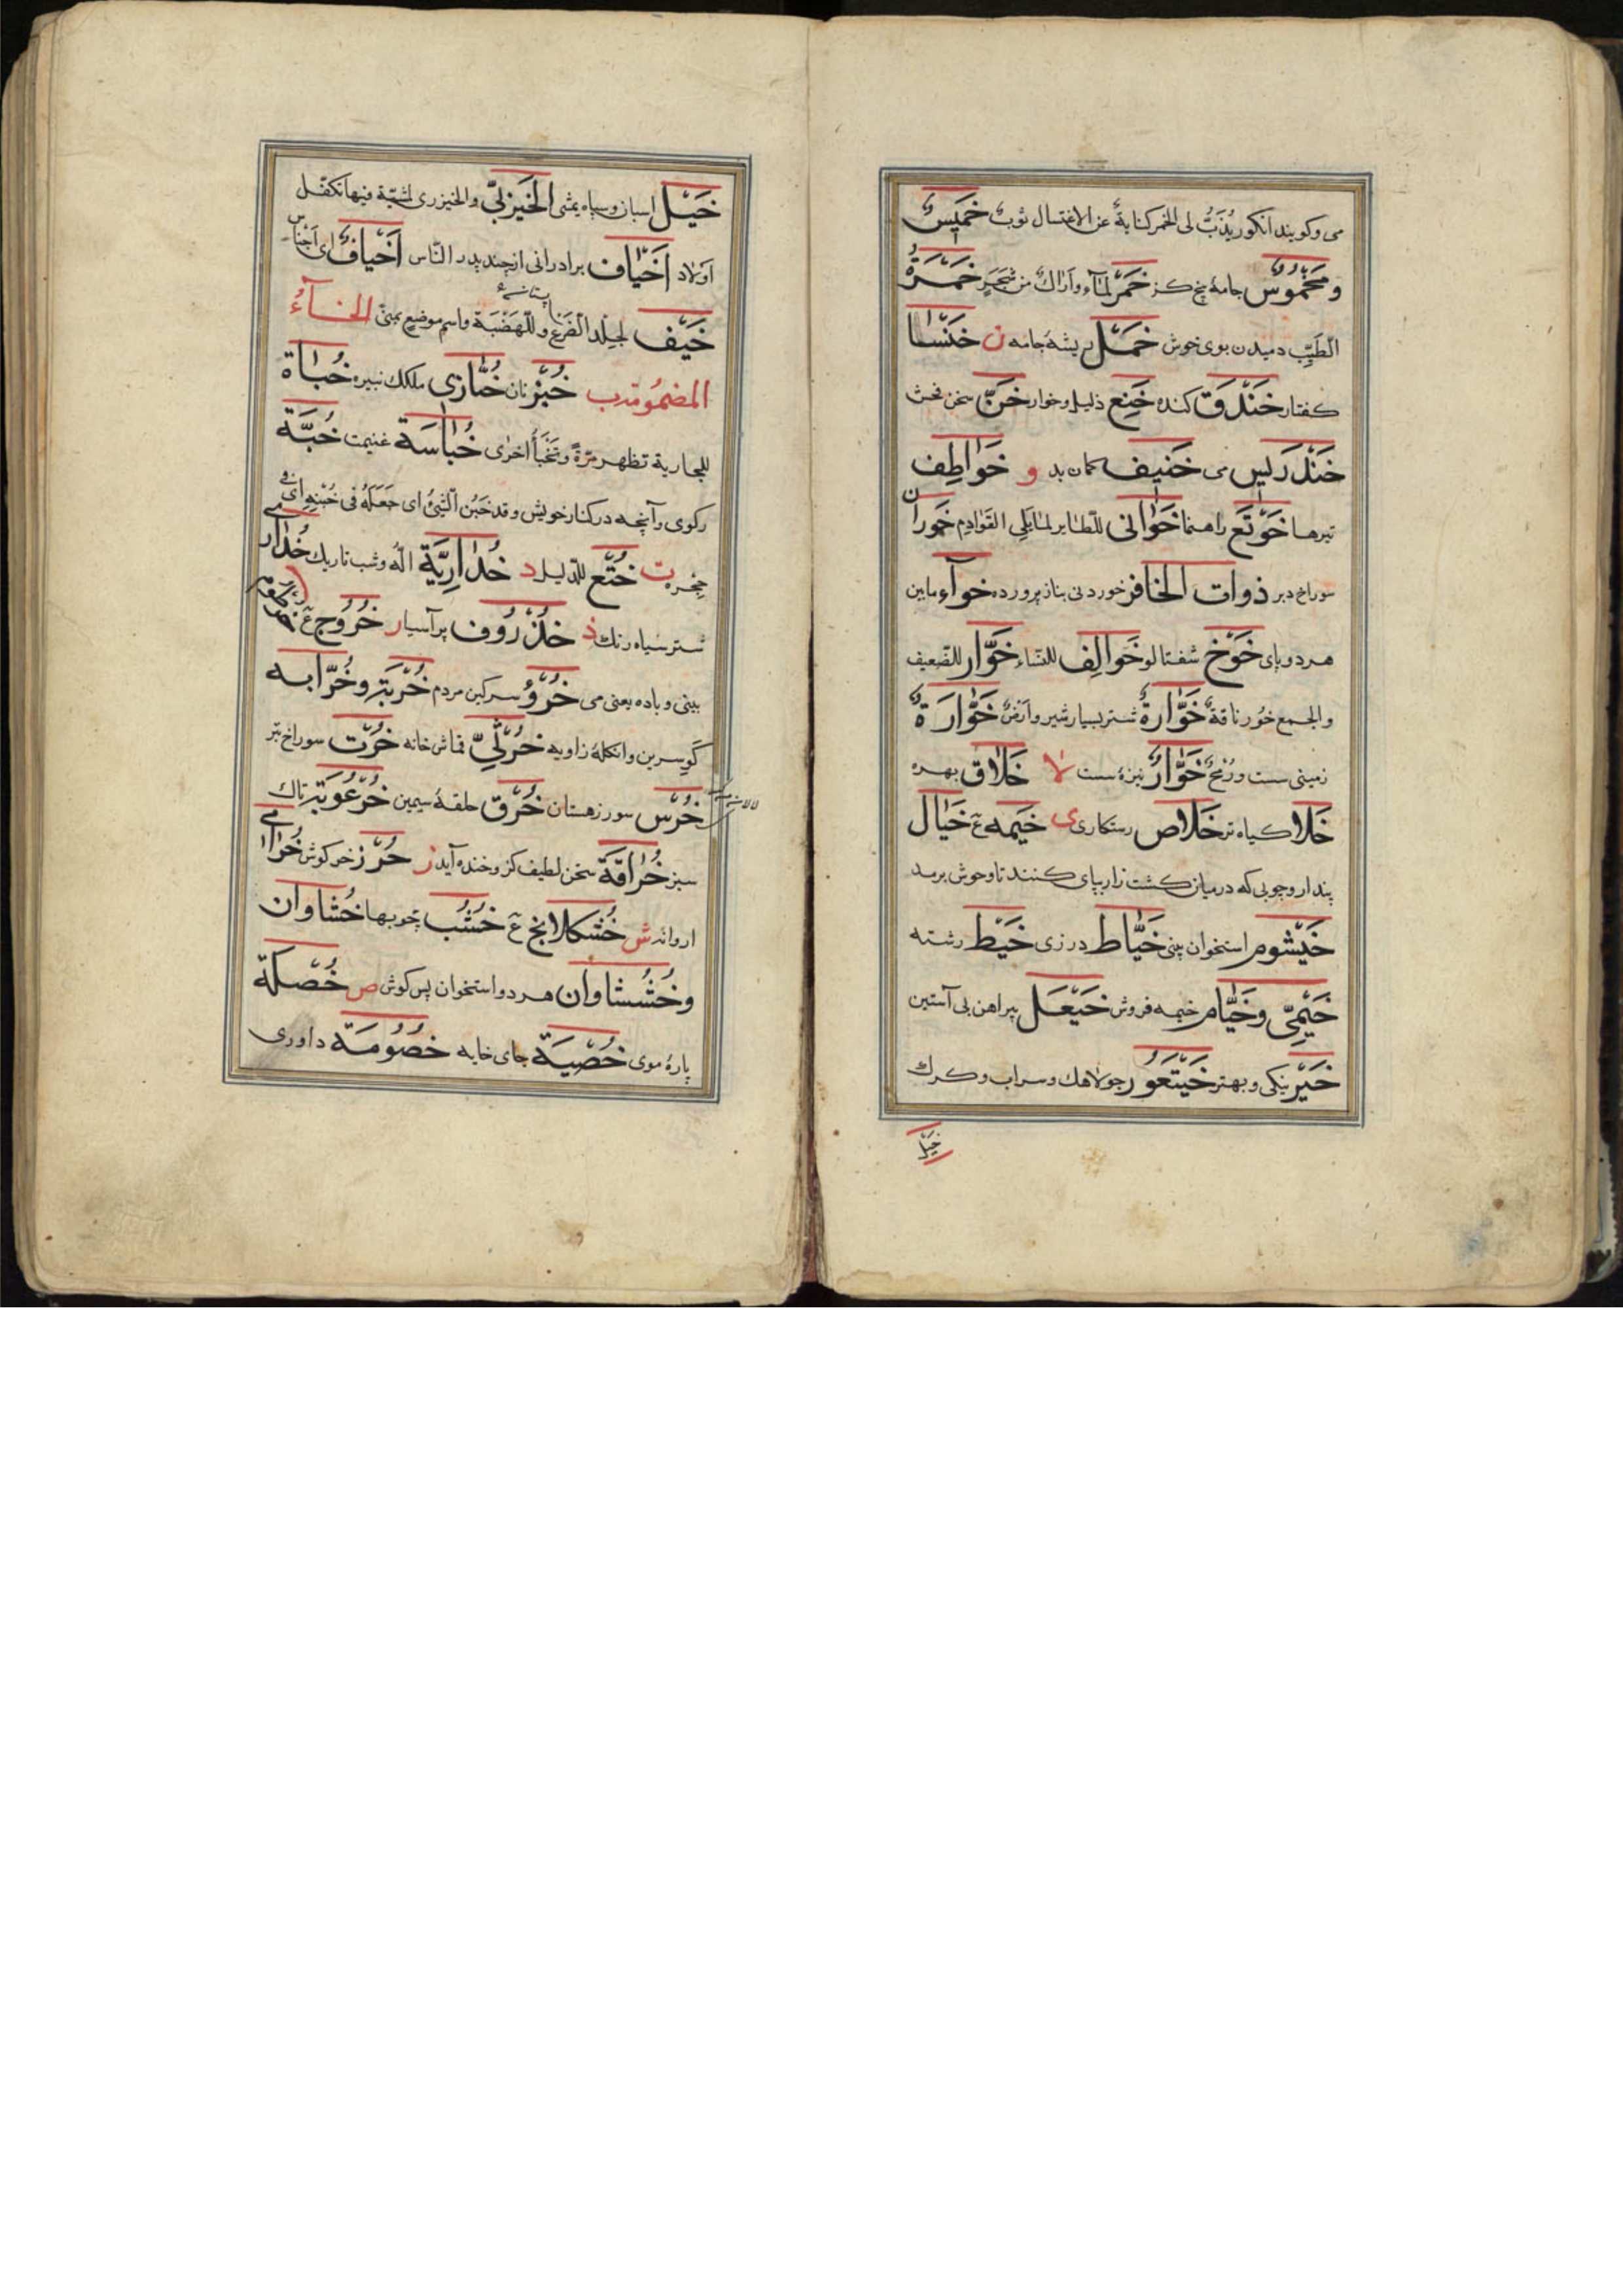 می وکویند انکور یُذَبُّ لی الخمر کنایةٌ عن الاغتسال ثوبٌ خَمِیسٌ
ومَخْمُوسٌ جامهٔ پنج کز خَمَر لمآء واَراكٌ من شجرٍ خَمَرَةُ
الطّیّب دمیدن بوی خوش خَمْل ریشهٔ جامه ن خَنْسا
کفتار خَنْدَق کنده خَنِع ذلیل وخوار خَنّ سخن فحش
خَنْدَریس می خَنیف کمان بد و خَواطِف
تیرها خَوْتَع راهنما خَوافی للطّایر لما یلی القَوادِم خَوران
سوراخ دبر ذوات الخافر خوردنی بناز پرورده خوآء مابین
هر دو پای خَوْخ شفتالو خَوالِف للنّساء خَوّار للضّعیف
والجمع خُور ناقةٌ خَوّارةٌ شتر بسیار شیر واَرْضٌ خَوّارَةٌ
زمینی سست ورُمْحٌ خَوّارٌ نیزهٔ سست لا خَلاق بهره
خَلا کیاه تر خَلاص رستکاری ی خَیمه ع خَیال
پندار وچوبی که درمیان کشت زار بپای کنند تا وحوش برمد
خَیْشوم استخوان بینی خَیّاط درزی خَیْط رشته
خَیْمِیّ وخَیّام خیمه فروش خَیْعَل پیراهن بی آستین
خَیْر نیکی وبهتر خَیْتَعُور جولاهك وسراب وکرك
خیل
خَیْل اسبان وسپاه یمشی الخَیْزَلیّ والخیزری لمشیّة فیها تکفّل
اَولاد اَخْیاف برادرانی از چند پدر النّاس اَخْیافٌ ای اَجْناس
خَیْف لجلد الضَرع وللّهضْبَة واسم موضعٍ بمنیً الخــآءُ
المضمُومة ب خُبْز نان خُبّازی ملکك نبیره خُباَة
للجاریة تظهر مرّةً وتَخْبَأُ اخرٰی خُباسَة غنیمت خُبَّة
رکوی وآنچه در کنار خویش وقد خَبَن الشّیئُ ای جَعَلَهُ فی خُبْنِهِ ای فی
حجره ت خُتَع للدّلیل د خُدارِیَّة اَلُه وشب تاریك خُداری
شتر سیاه رنك ذ خُذْرُوف پرآسیا ر خُرُوج ع خرطوم
بینی وباده یعنی می خُرْوُ سرکین مردم خُرْبَة وخُرّابه
کَوِ سرین وانکلهٔ زاویه خُرْثِیّ قماش خانه خُرْت سوراخ تبر
خُرْس سور زهستان خُرْق حلقهٔ سیمین خُرْعُوبَة تاك
سبز خُرافَة سخن لطیف کزو خنده آید ز خُزَز خرکوش خُزامی
اروانه ش خُشکلانج ع خُشُب چوبها خُشاوان
وخُشُشاوان هر دو استخوان پس کوش ص خُصْلَة
پارهٔ موی خُصْیَة جای خایه خُصُومَة داوری